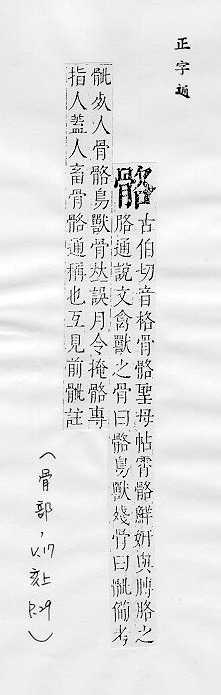 正字通
骼
古伯切音格骨骼聖母帖霄骼鮮妍與膊胳之
胳通說文禽獸之骨曰骼鳥獸殘骨曰骴備考
骴人骨骼鳥獸骨𠀤誤月令掩骼專
指人蓋人畜骨骼通稱也互見前骴註
(骨部, V.17 亥上 P.29)